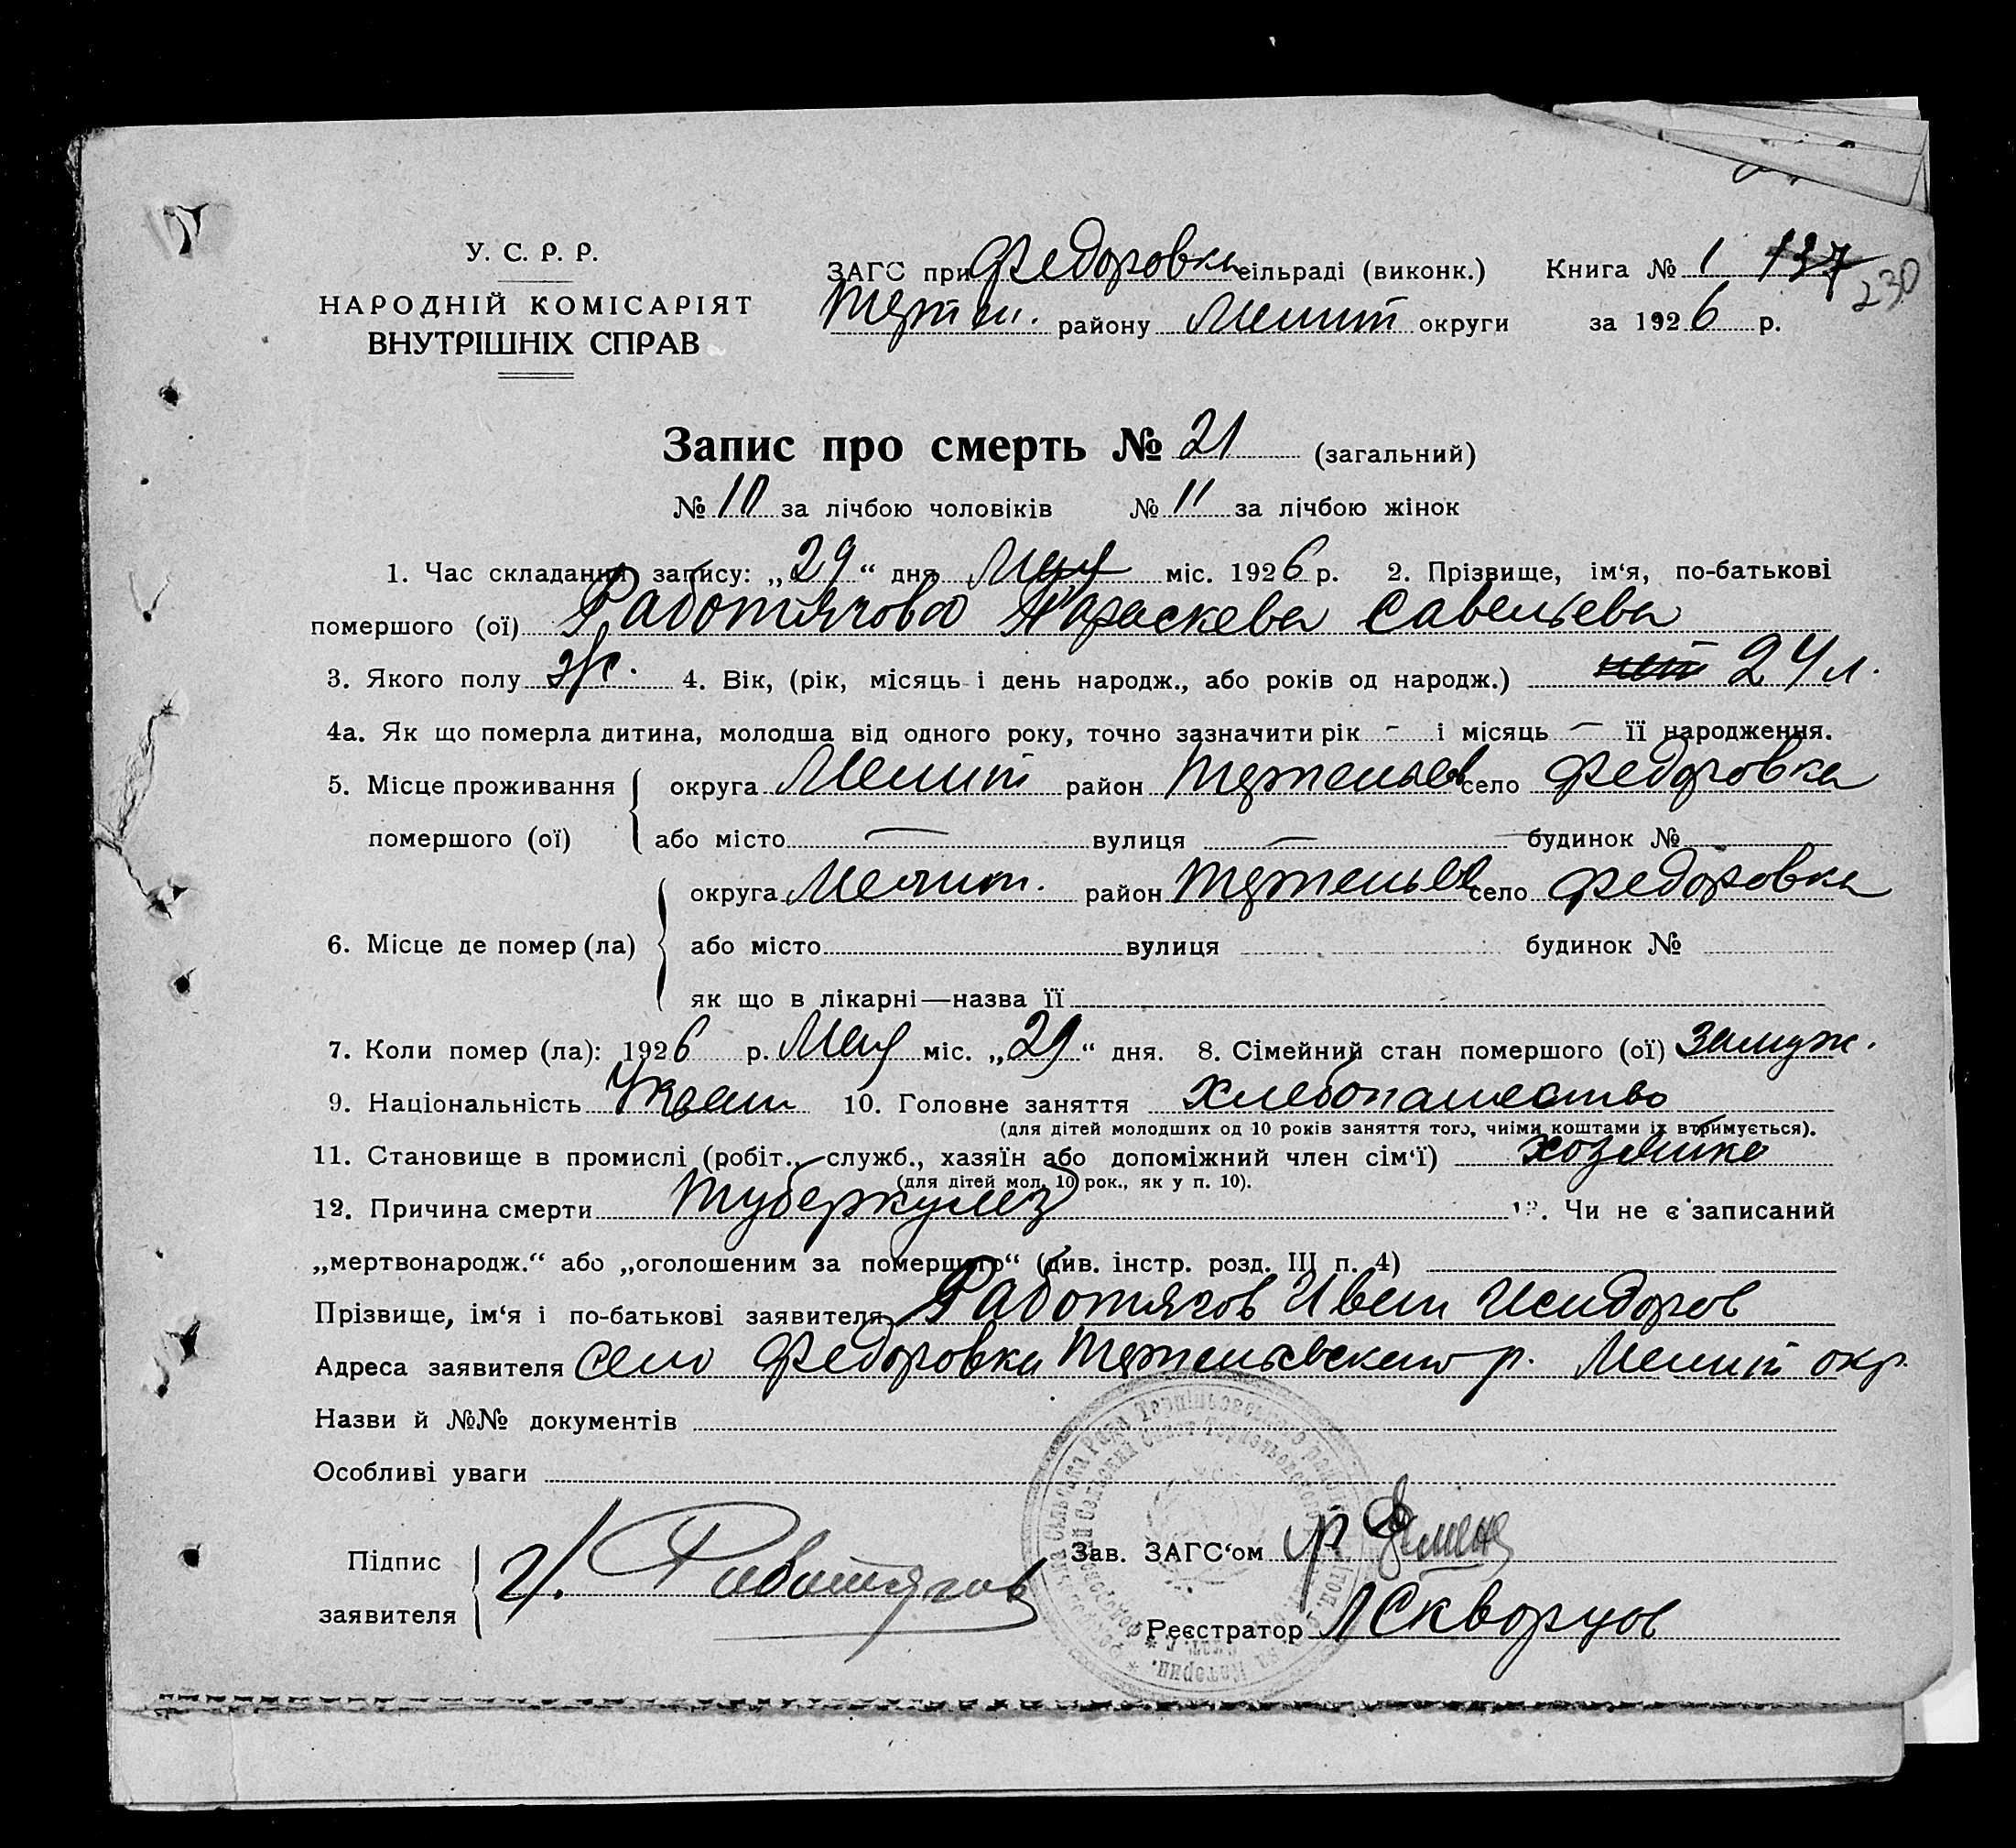 У. С. Р. Р.
НАРОДНІЙ КОМІСАРІЯТ
ВНУТРІШНІХ СПРАВ
ЗАГС при Федоровка сільраді (виконк.) Книга № 1 137 230
району Мелит округи за 1926 р.
Запис про смерть № 21 (загальний)
№ 10 за лічбою чоловіків № 11 за лічбою жінок
1. Час складання запису: „29“ дня Мая міс. 1926 р. 2. Прізвище, ім‘я, по-батькові
помершого (ої) Работягова Параскева Савельева
3. Якого полу ж. 4. Вік, (рік, місяць і день народж., або років од народж.) 24 л.
4а. Як що померла дитина, молодша від одного року, точно зазначити рік - і місяць - її народження.
5. Місце проживання округа Мелит район село Федоровка
помершого (ої) або місто — вулиця — будинок №
округа Мелит. район село Федоровка
6. Місце де помер (ла) або місто вулиця будинок №
як що в лікарні—назва її
7. Коли помер (ла): 1926 р. Мая міс. „29“ дня. 8. Сімейний стан помершого (ої) замуж.
9. Національність Украин 10. Головне заняття хлебопашество
(для дітей молодших од 10 років заняття того, чиїми коштами їх втримується).
11. Становище в промислі (робіт., служб., хазяїн або допоміжний член сім‘ї) хозяйка
(для дітей мол. 10 рок., як у п. 10).
12. Причина смерти туберкулез 13. Чи не є записаний
„мертвонародж.“ або „оголошеним за помершого“ (див. інстр. розд. III п. 4)
Прізвище, ім‘я і по-батькові заявителя Работягов Иван Исидоров
Адреса заявителя село Федоровка р. Мелит окр.
Назви й №№ документів
Особливі уваги
Підпис
заявителя Работягов
Зав. ЗАГС‘ом
Реєстратор Л Скворцов